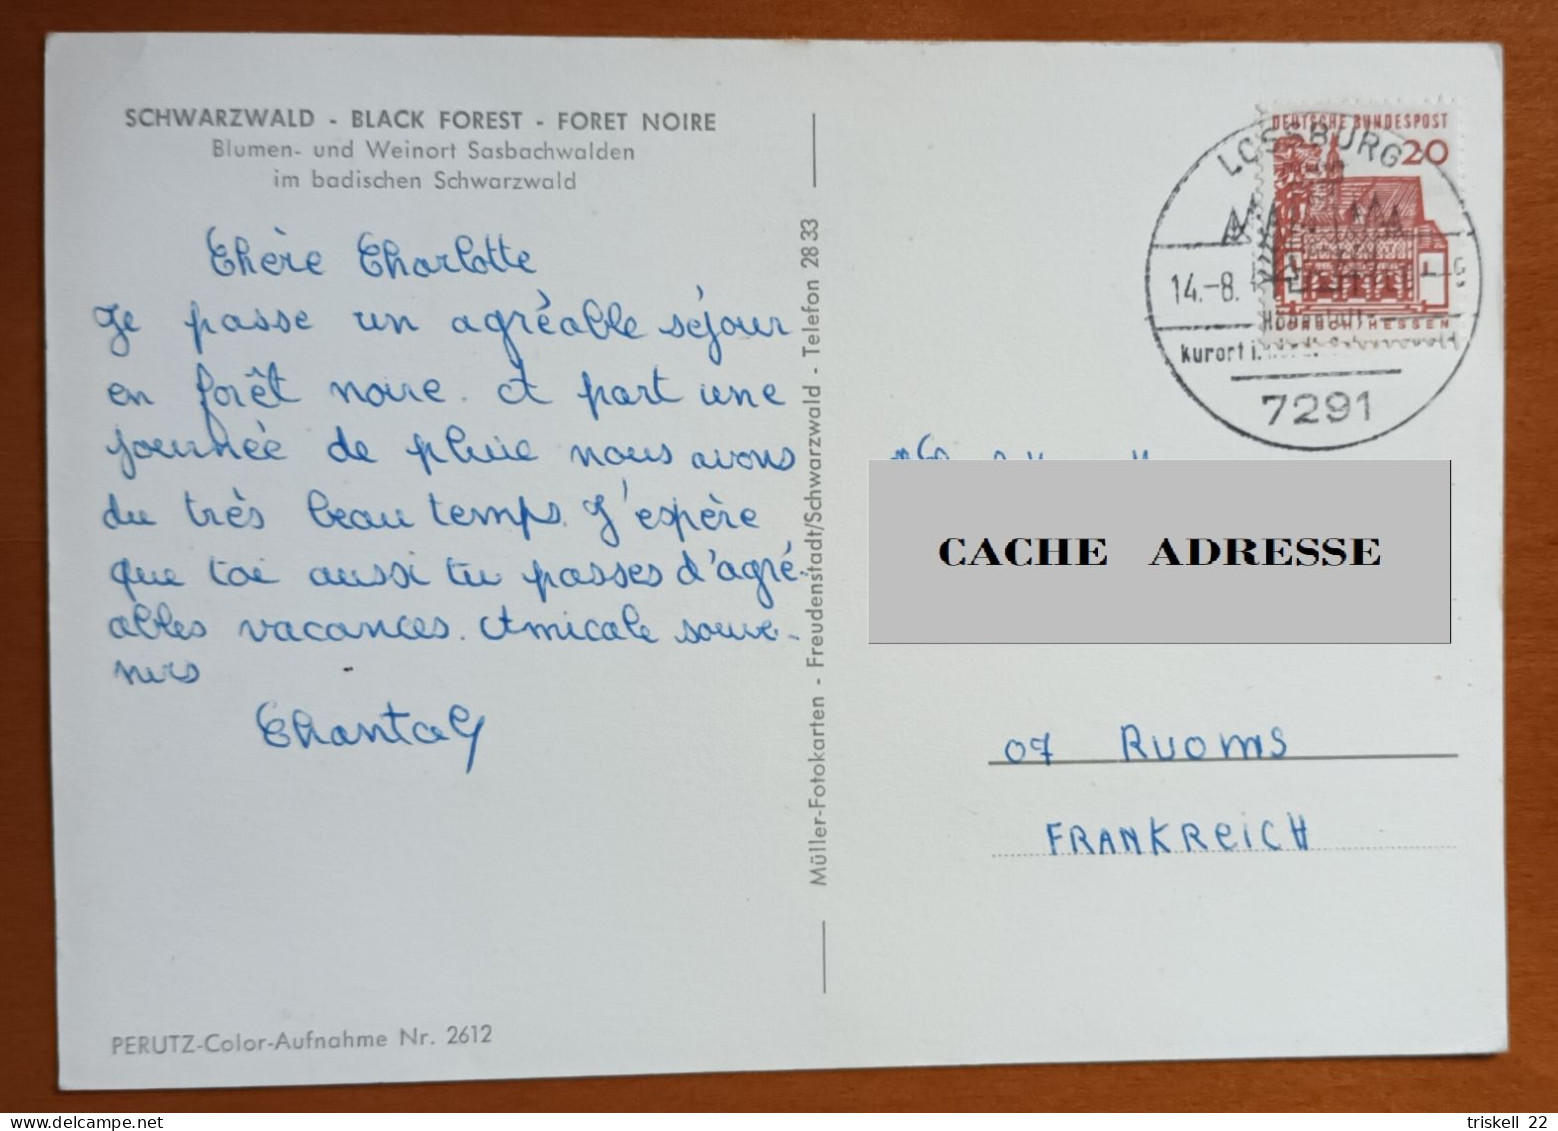 SCHWARZWALD - BLACK FOREST - FORET NOIRE
Blumen- und Weinort Sasbachwalden
im badischen Schwarzwald
Chère Charlotte
Je passe un agréable séjour
en forêt noire. A part une
journée de pluie nous avons
du très beau temps. J'espère
que toi aussi tu passes d'agré-
ables vacances. Amicale souve-
nirs
Chantal
PERUTZ-Color-Aufnahme Nr. 2612
Müller-Fotokarten - Freudenstadt/Schwarzwald - Telefon 28 33
DEUTSCHE BUNDESPOST
20
LORSCH/HESSEN
LOSSBURG
14.-8.
kurort i.
7291
CACHE ADRESSE
07 RUOMS
FRANKREICH
www.delcampe.net
triskell 22